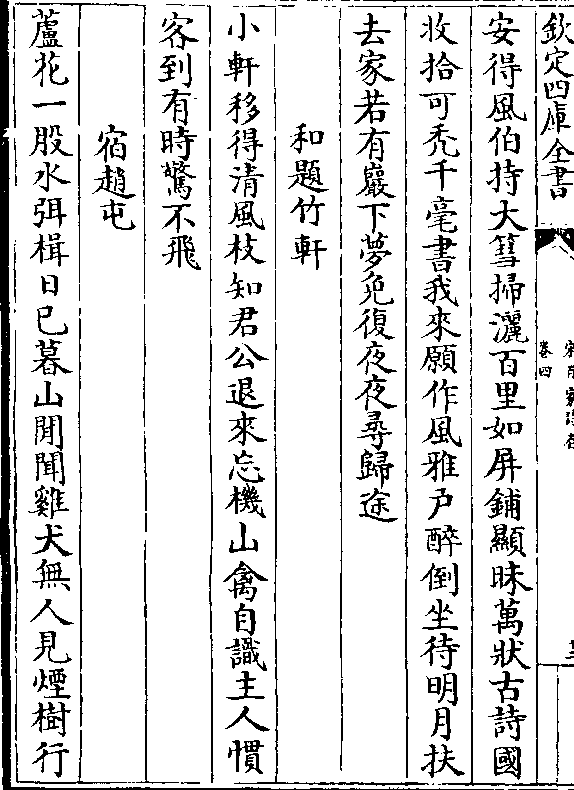 欽定四庫全書
卷四
安得風伯持大篲掃灑百里如屏鋪顯昧萬狀古詩國
收拾可禿千毫書我來願作風雅户醉倒坐待明月扶
去家若有巖下夢免復夜夜尋歸途
和題竹軒
小軒移得清風枝知君公退來忘機山禽自識主人慣
客到有時驚不飛
宿趙屯
蘆花一股水弭楫日已暮山閒聞雞犬無人見煙樹行